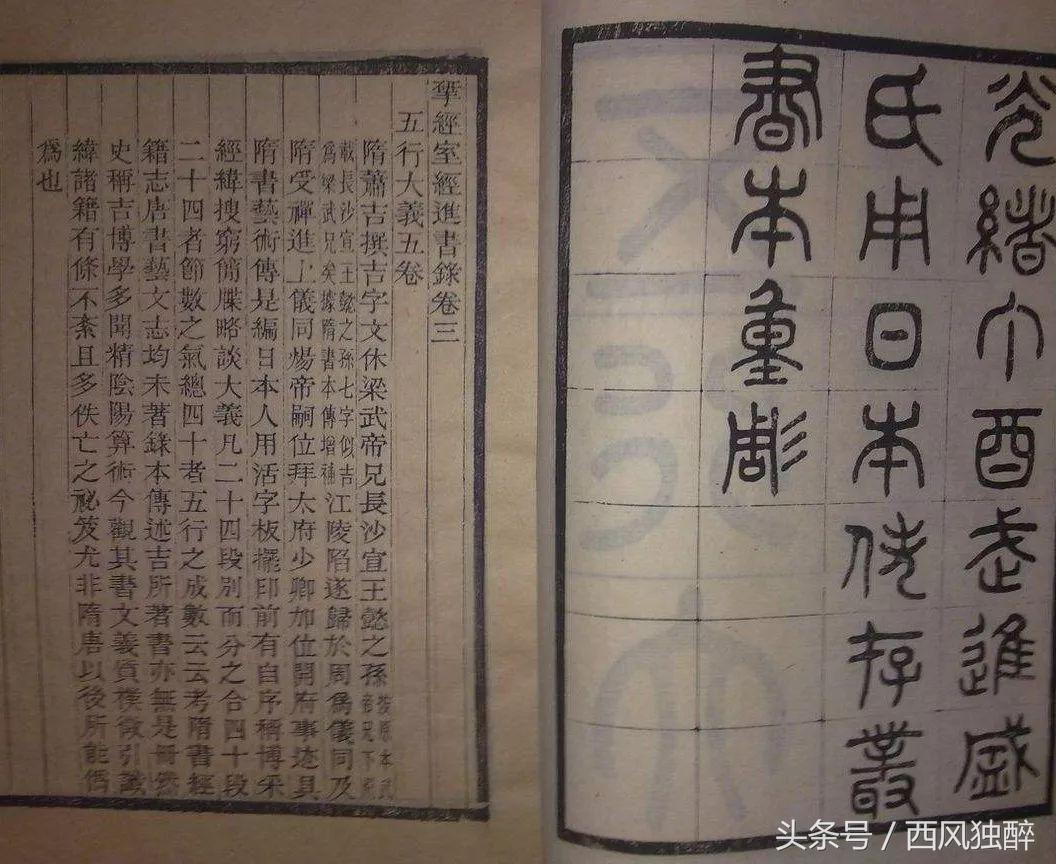 光緒丁酉武進盛
氏用日本佚存叢
書本重彫
揅經室經進書錄卷三
五行大義五卷
隋蕭吉撰吉字文休梁武帝兄長沙宣王懿之孫按原本武帝兄下
載長沙宣王懿之孫七字似吉爲梁武兄矣據隋書本傳增補江陵陷遂歸於周爲儀同及
隋受禪進上儀同煬帝嗣位拜太府少卿加位開府事迹具
隋書藝術傳是編日本人用活字板擺印前有自序稱博采
經緯搜窮簡牒略談大義凡二十四段別而分之合四十段
二十四者節數之氣總四十者五行之成數云云考隋書經
籍志唐書藝文志均未著錄本傳述吉所著書亦無是冊然
史稱吉博學多聞精陰陽算術今觀其書文義質樸徵引讖
緯諸籍有條不紊且多佚亡之祕笈尤非隋唐以後所能僞
爲也
头条号 / 西风独醉